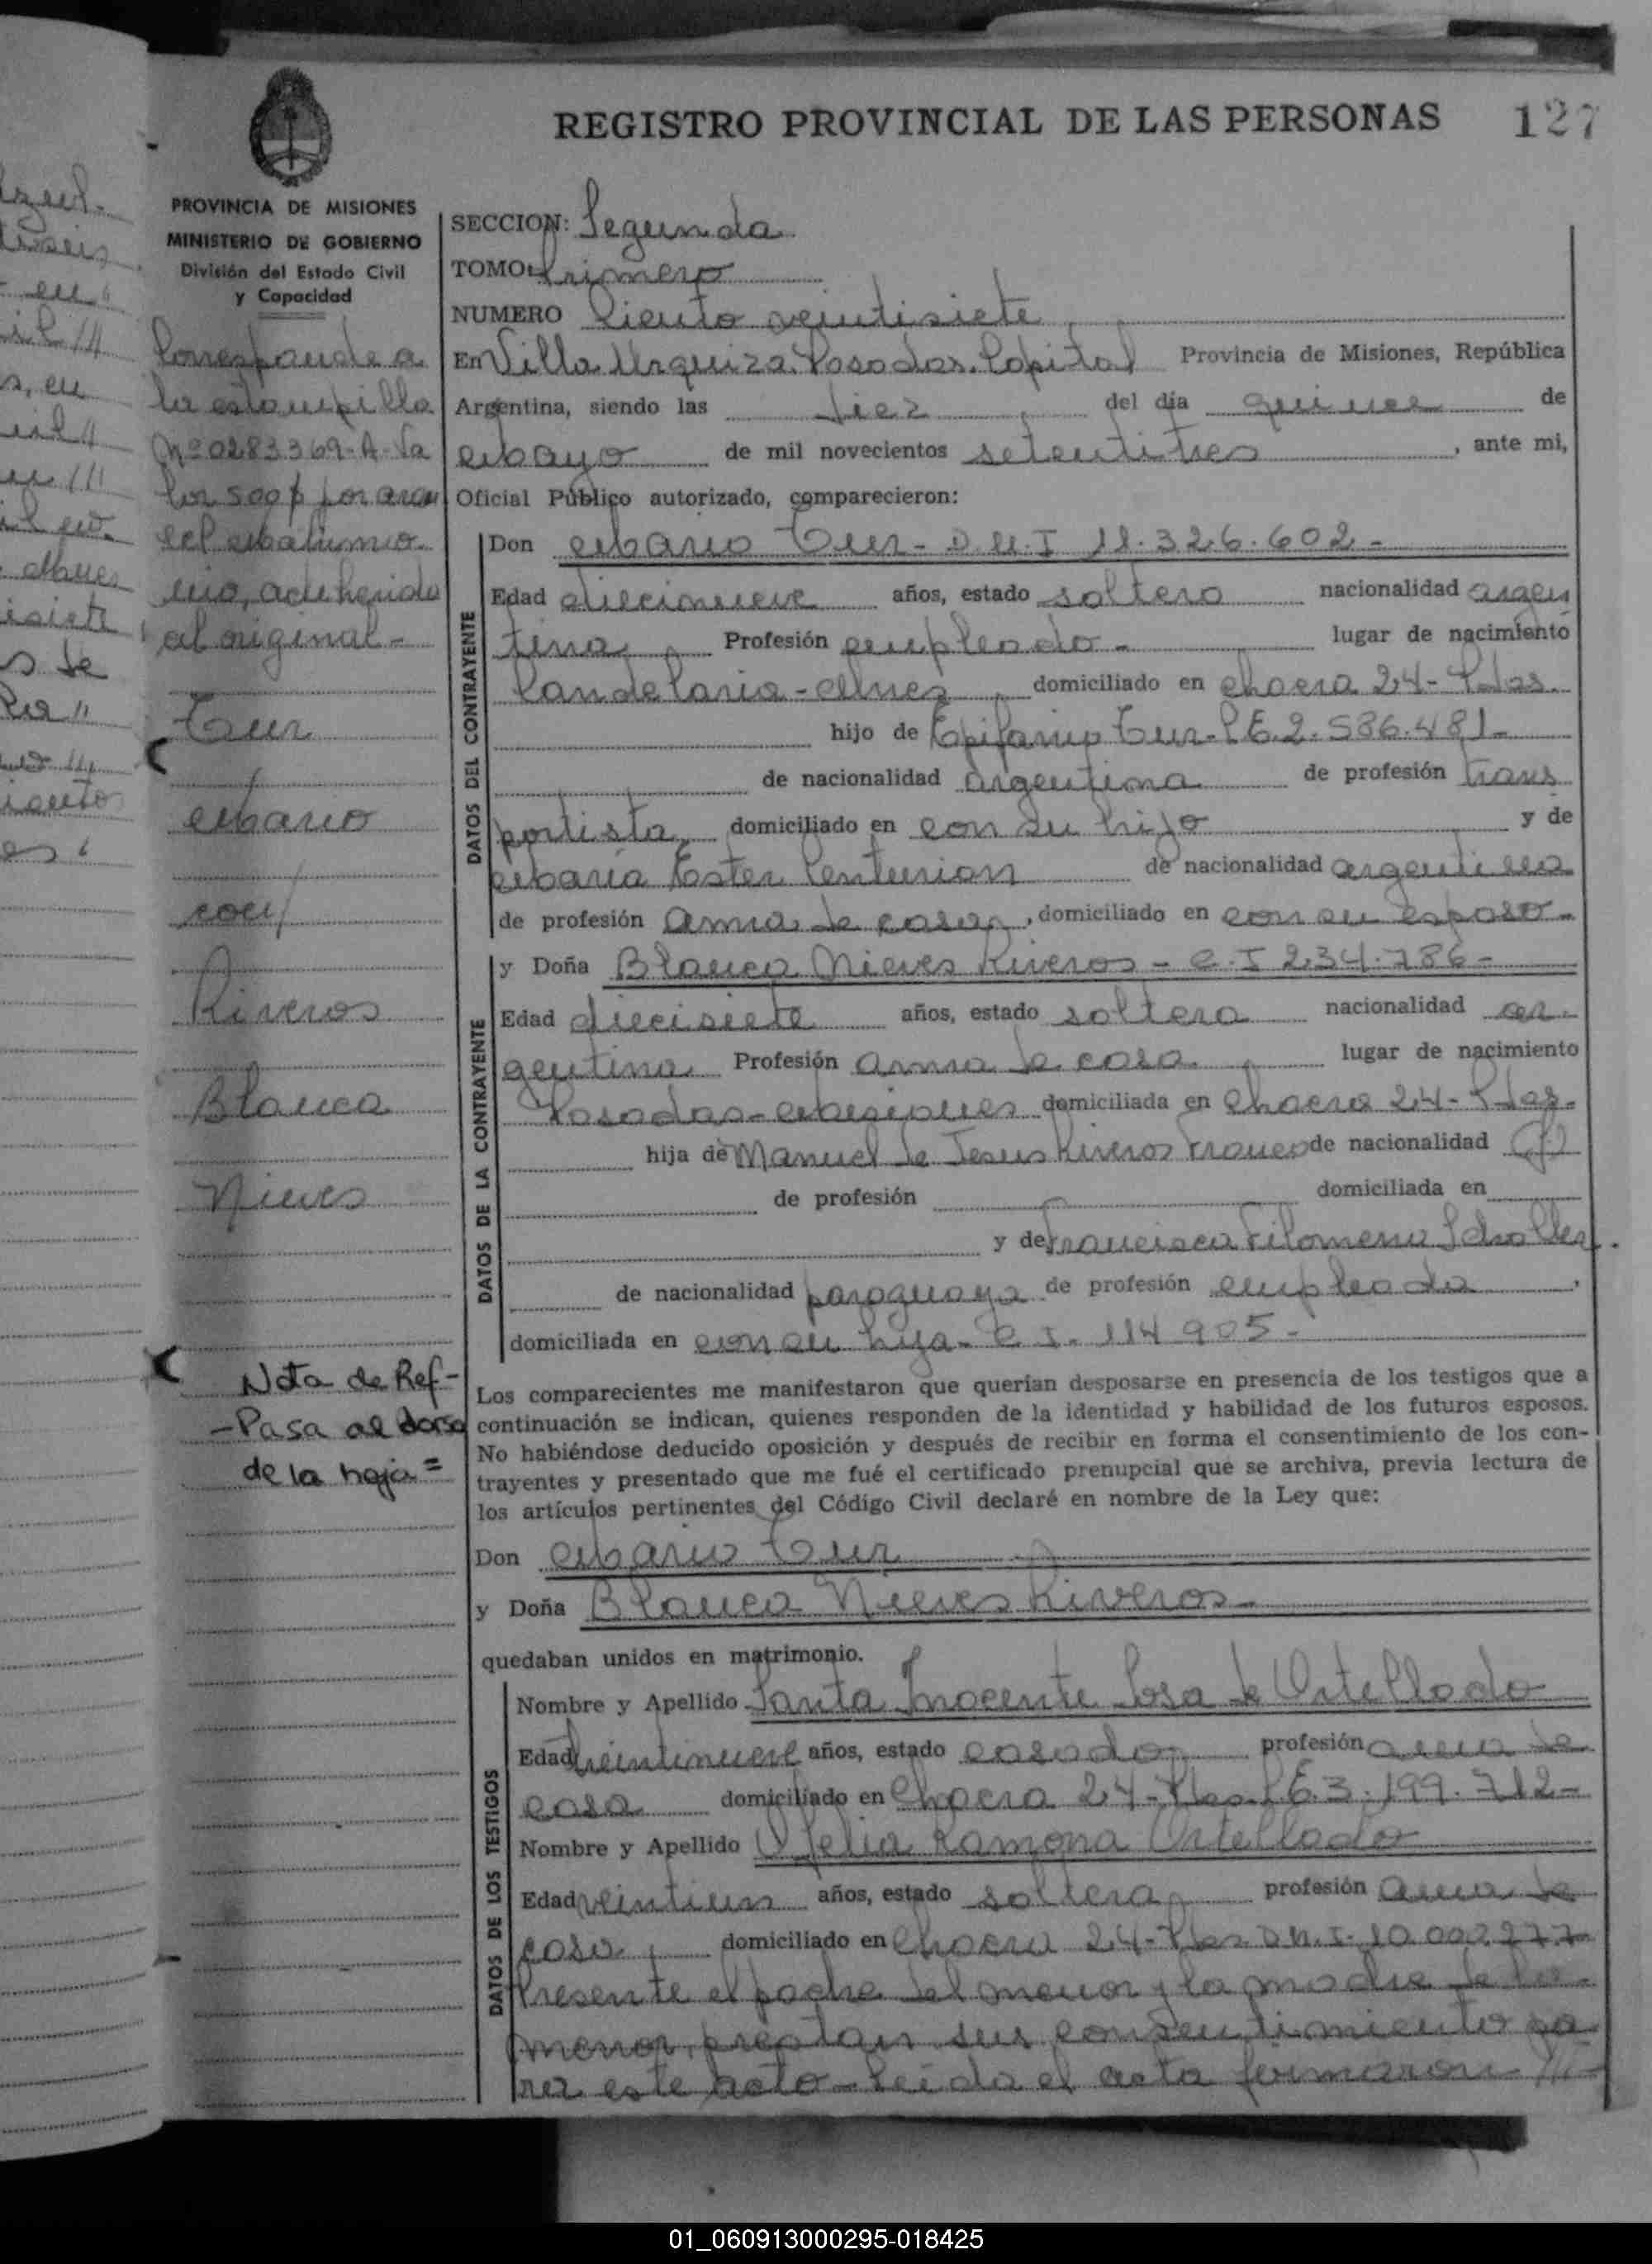 REGISTRO PROVINCIAL DE LAS PERSONAS 127
PROVINCIA DE MISIONES
MINISTERIO DE GOBIERNO
División del Estado Civil
y Capacidad
Corresponde a
la estampilla
Nº 0283369-A-Va
lor 500$ por aran
cel matrimo
nio, adherido
al original-
Tur
Mario
con
Riveros
Blanca
Nieves
Nota de Ref-
-Pasa al dorso
de la hoja=
SECCION: Segunda
TOMO: Primero
NUMERO Ciento veintisiete
En Villa Urquiza, Posadas, Capital Provincia de Misiones, República
Argentina, siendo las diez del día quince de
Mayo de mil novecientos setentitres, ante mi,
Oficial Público autorizado, comparecieron:
DATOS DEL CONTRAYENTE
Don Mario Tur- D.N.I 11.326.602-
Edad diecinueve años, estado soltero nacionalidad argen
tina Profesión empleado- lugar de nacimiento
Candelaria-Mnes domiciliado en Chacra 24-Pdas.
hijo de Epifanio Tur-L.E.2.586.481-
de nacionalidad argentina de profesión trans
portista, domiciliado en con su hijo y de
Maria Ester Centurion de nacionalidad argentina
de profesión ama de casa, domiciliado en con su esposo-
DATOS DE LA CONTRAYENTE
y Doña Blanca Nieves Riveros- C.I 234.786-
Edad diecisiete años, estado soltera nacionalidad ar-
gentina Profesión ama de casa lugar de nacimiento
Posadas-Misiones domiciliada en Chacra 24-Pdas-
hija de Manuel de Jesus Riveros Franco de nacionalidad
de profesión domiciliada en
y de Francisca Filomena
de nacionalidad paraguaya de profesión empleada,
domiciliada en con su hija- C.I. 114905-
Los comparecientes me manifestaron que querían desposarse en presencia de los testigos que a
continuación se indican, quienes responden de la identidad y habilidad de los futuros esposos.
No habiéndose deducido oposición y después de recibir en forma el consentimiento de los con-
trayentes y presentado que me fué el certificado prenupcial que se archiva, previa lectura de
los artículos pertinentes del Código Civil declaré en nombre de la Ley que:
Don Mario Tur
y Doña Blanca Nieves Riveros-
quedaban unidos en matrimonio.
DATOS DE LOS TESTIGOS
Nombre y Apellido Santa Inocente Sosa de Ortellado
Edad treintinueve años, estado casada, profesión ama de
casa domiciliado en Chacra 24-Pdas-L.E.3.199.712-
Nombre y Apellido Ofelia Ramona Ortellado
Edad veintiun años, estado soltera, profesión ama de
casa, domiciliado en Chacra 24-Pdas D.N.I-10.002.277-
Presente el padre del menor y la madre de la
menor, prestan su consentimiento pa
ra este acto-Leida el acta firmaron-///-
01_060913000295-018425